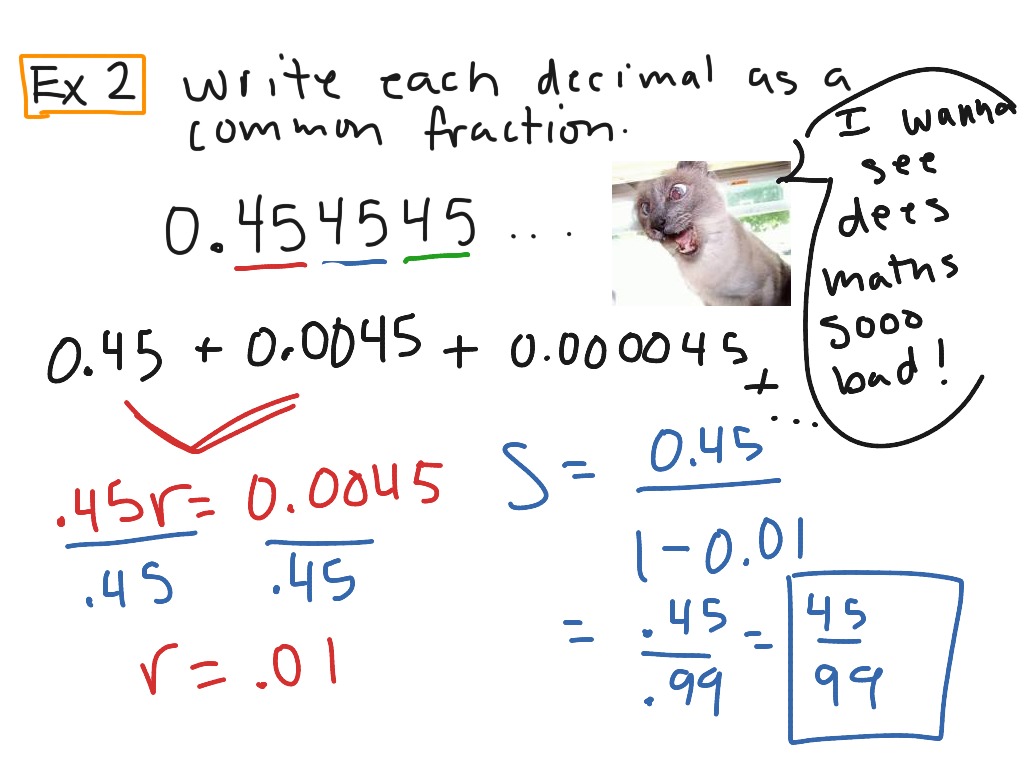 Ex 2 Write each decimal as a
common fraction.
0.454545 ...
I wanna
see
dees
maths
sooo
bad!
0.45 + 0.0045 + 0.000045
+ ...
.45r = 0.0045
.45 .45
r = .01
S = 0.45
1 - 0.01
= .45 = 45
.99 99